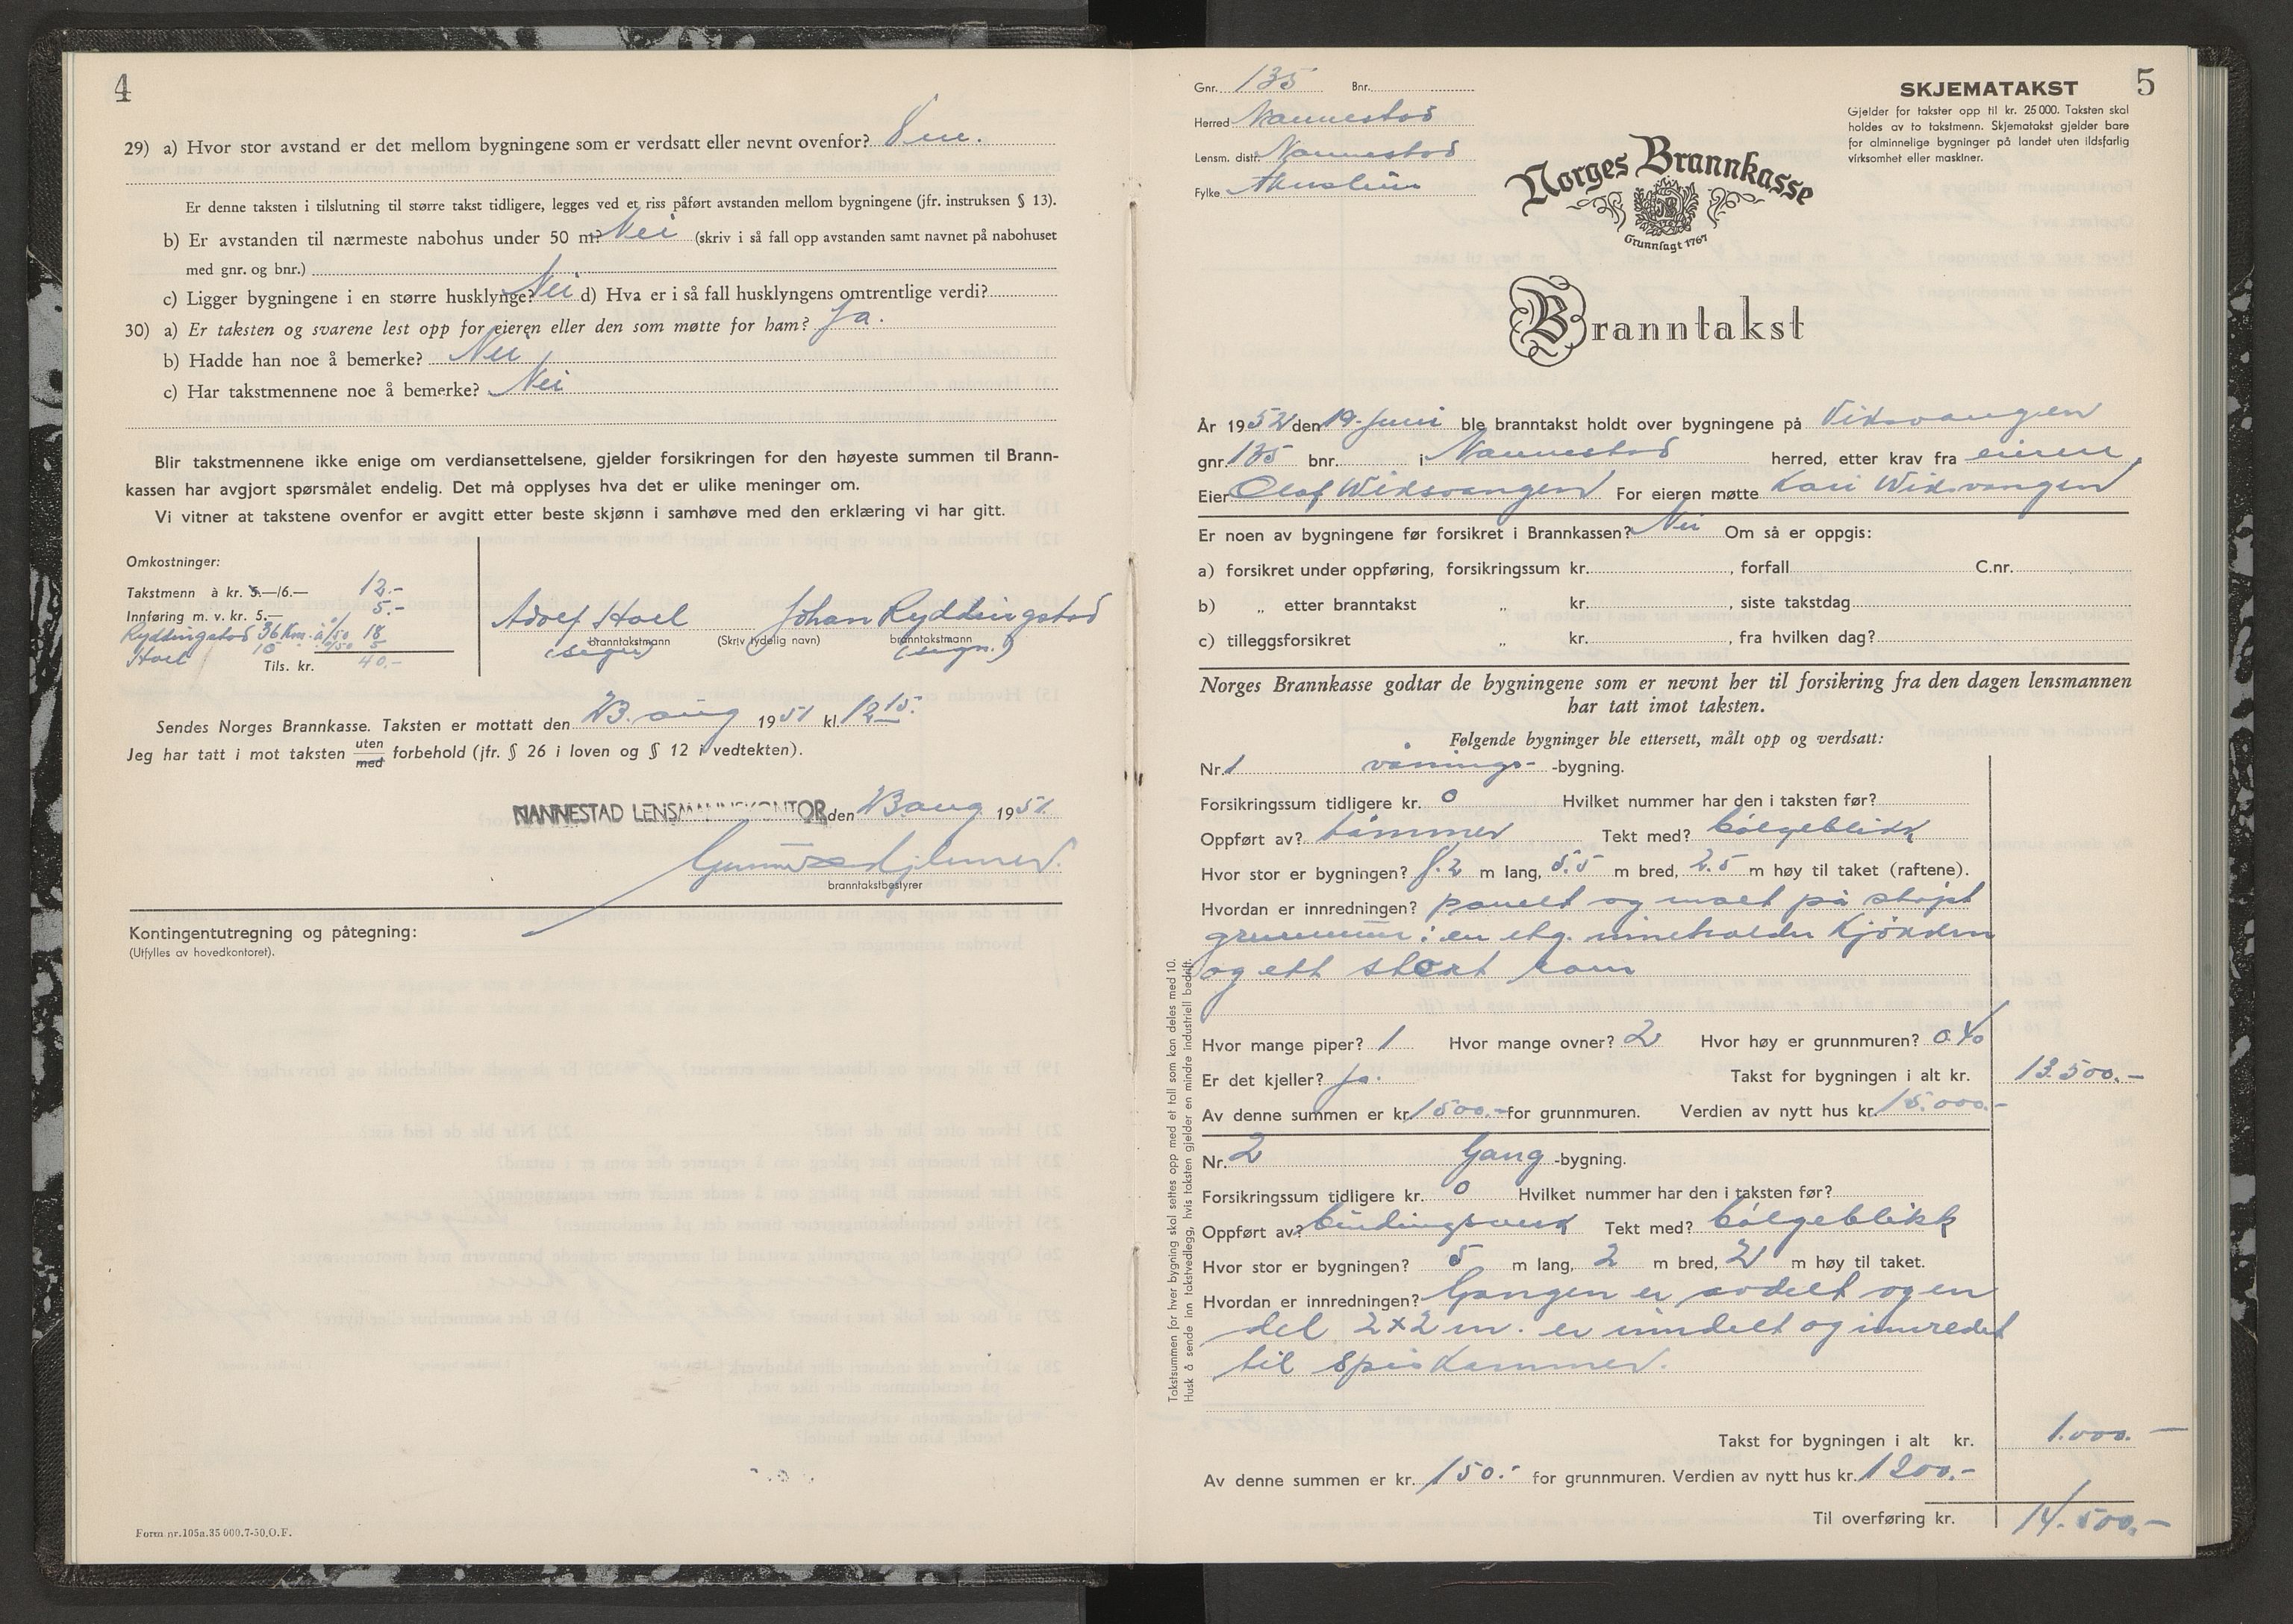 4
29) a) Hvor stor avstand er det mellom bygningene som er verdsatt eller nevnt ovenfor? 8 m.
Er denne taksten i tilslutning til større takst tidligere, legges ved et riss påført avstanden mellom bygningene (jfr. instruksen § 13).
b) Er avstanden til nærmeste nabohus under 50 m? Nei (skriv i så fall opp avstanden samt navnet på nabohuset
med gnr. og bnr.)
c) Ligger bygningene i en større husklynge? Nei d) Hva er i så fall husklyngens omtrentlige verdi?
30) a) Er taksten og svarene lest opp for eieren eller den som møtte for ham? Ja.
b) Hadde han noe å bemerke? Nei
c) Har takstmennene noe å bemerke? Nei
Blir takstmennene ikke enige om verdiansettelsene, gjelder forsikringen for den høyeste summen til Brann-
kassen har avgjort spørsmålet endelig. Det må opplyses hva det er ulike meninger om.
Vi vitner at takstene ovenfor er avgitt etter beste skjønn i samhøve med den erklæring vi har gitt.
Omkostninger:
Takstmenn à kr. 5.—/6.— 12.-
Innføring m. v. kr. 5.— 5.-
Ryddingstad 36 Km. à 0/50 18
Hoel 10 " à 0/50 5
Tils. kr. 40.-
Adolf Hoel Johan Ryddingstad
branntakstmann (Skriv tydelig navn) branntakstmann
(sign) (sign.)
Sendes Norges Brannkasse. Taksten er mottatt den 23. aug 1951 kl. 12 15.
Jeg har tatt i mot taksten uten med forbehold (jfr. § 26 i loven og § 12 i vedtekten).
NANNESTAD LENSMANNSKONTOR den 23 aug. 1951.
branntakstbestyrer
Kontingentutregning og påtegning:
(Utfylles av hovedkontoret).
Form nr. 105a. 35 000. 7-50. O. F.
5
SKJEMATAKST
Gjelder for takster opp til kr. 25 000. Taksten skal
holdes av to takstmenn. Skjematakst gjelder bare
for alminnelige bygninger på landet uten ildsfarlig
virksomhet eller maskiner.
Gnr. 135 Bnr.
Herred Nannestad
Lensm. distr. Nannestad
Fylke Akershus
Norges Brannkasse
Grunnlagt 1767
Branntakst
År 1952 den 19. juni ble branntakst holdt over bygningene på Viksvangen
gnr. 135 bnr. i Nannestad herred, etter krav fra eieren
Eier Olaf Wiksvangen For eieren møtte Kari Wiksvangen
Er noen av bygningene før forsikret i Brannkassen? Nei Om så er oppgis:
a) forsikret under oppføring, forsikringssum kr. , forfall C.nr.
b) „ etter branntakst „ kr. , siste takstdag
c) tilleggsforsikret „ kr. , fra hvilken dag?
Norges Brannkasse godtar de bygningene som er nevnt her til forsikring fra den dagen lensmannen
har tatt imot taksten.
Følgende bygninger ble ettersett, målt opp og verdsatt:
Nr. 1 vånings- -bygning.
Forsikringssum tidligere kr. 0 Hvilket nummer har den i taksten før?
Oppført av? tømmer Tekt med? bølgeblikk
Hvor stor er bygningen? 8.2 m lang, 5.5 m bred, 2.5 m høy til taket (raftene).
Hvordan er innredningen? panelt og malt på støpt
grunnmur: en etg. inneholder Kjøkken
og ett stort rom
Hvor mange piper? 1 Hvor mange ovner? 2 Hvor høy er grunnmuren? 0.40
Er det kjeller? Ja. Takst for bygningen i alt kr. 13.500.-
Av denne summen er kr. 1500.- for grunnmuren. Verdien av nytt hus kr. 15.000.-
Nr. 2 Gang -bygning.
Forsikringssum tidligere kr. 0 Hvilket nummer har den i taksten før?
Oppført av? bindingsverk Tekt med? bølgeblikk
Hvor stor er bygningen? 5 m lang, 2 m bred, 2 m høy til taket.
Hvordan er innredningen? Gangen er avdelt og en
del 2×2 m. er inndelt og innredet
til spiskammer.
Takst for bygningen i alt kr. 1.000.-
Av denne summen er kr. 150.- for grunnmuren. Verdien av nytt hus kr. 1200.-
Til overføring kr. 14.500.-
Takstsummen for hver bygning skal settes opp med et tall som kan deles med 10.
Husk å sende inn takstvedlegg, hvis taksten gjelder en mindre industriell bedrift.